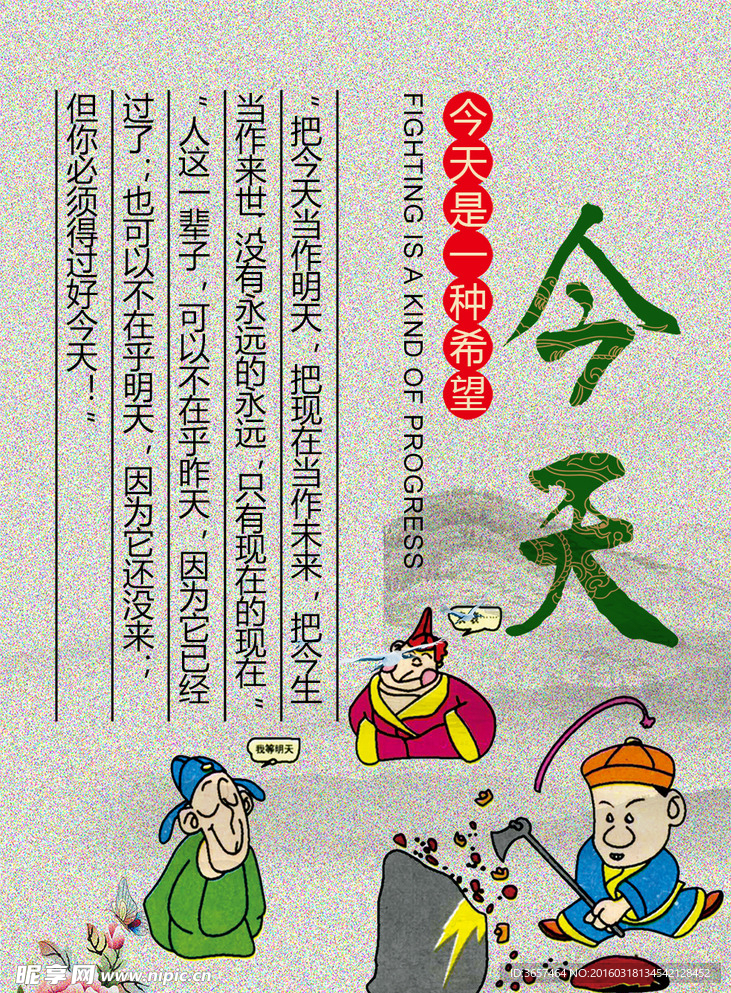 今天
今天是一种希望
FIGHTING IS A KIND OF PROGRESS
“把今天当作明天，把现在当作未来，把今生
当作来世，没有永远的永远，只有现在的现在”
“人这一辈子，可以不在乎昨天，因为它已经
过了；也可以不在乎明天，因为它还没来；
但你必须得过好今天！”
我等明天
昵享网 www.nipic.cn
ID:3657464 NO:20160318134542128452